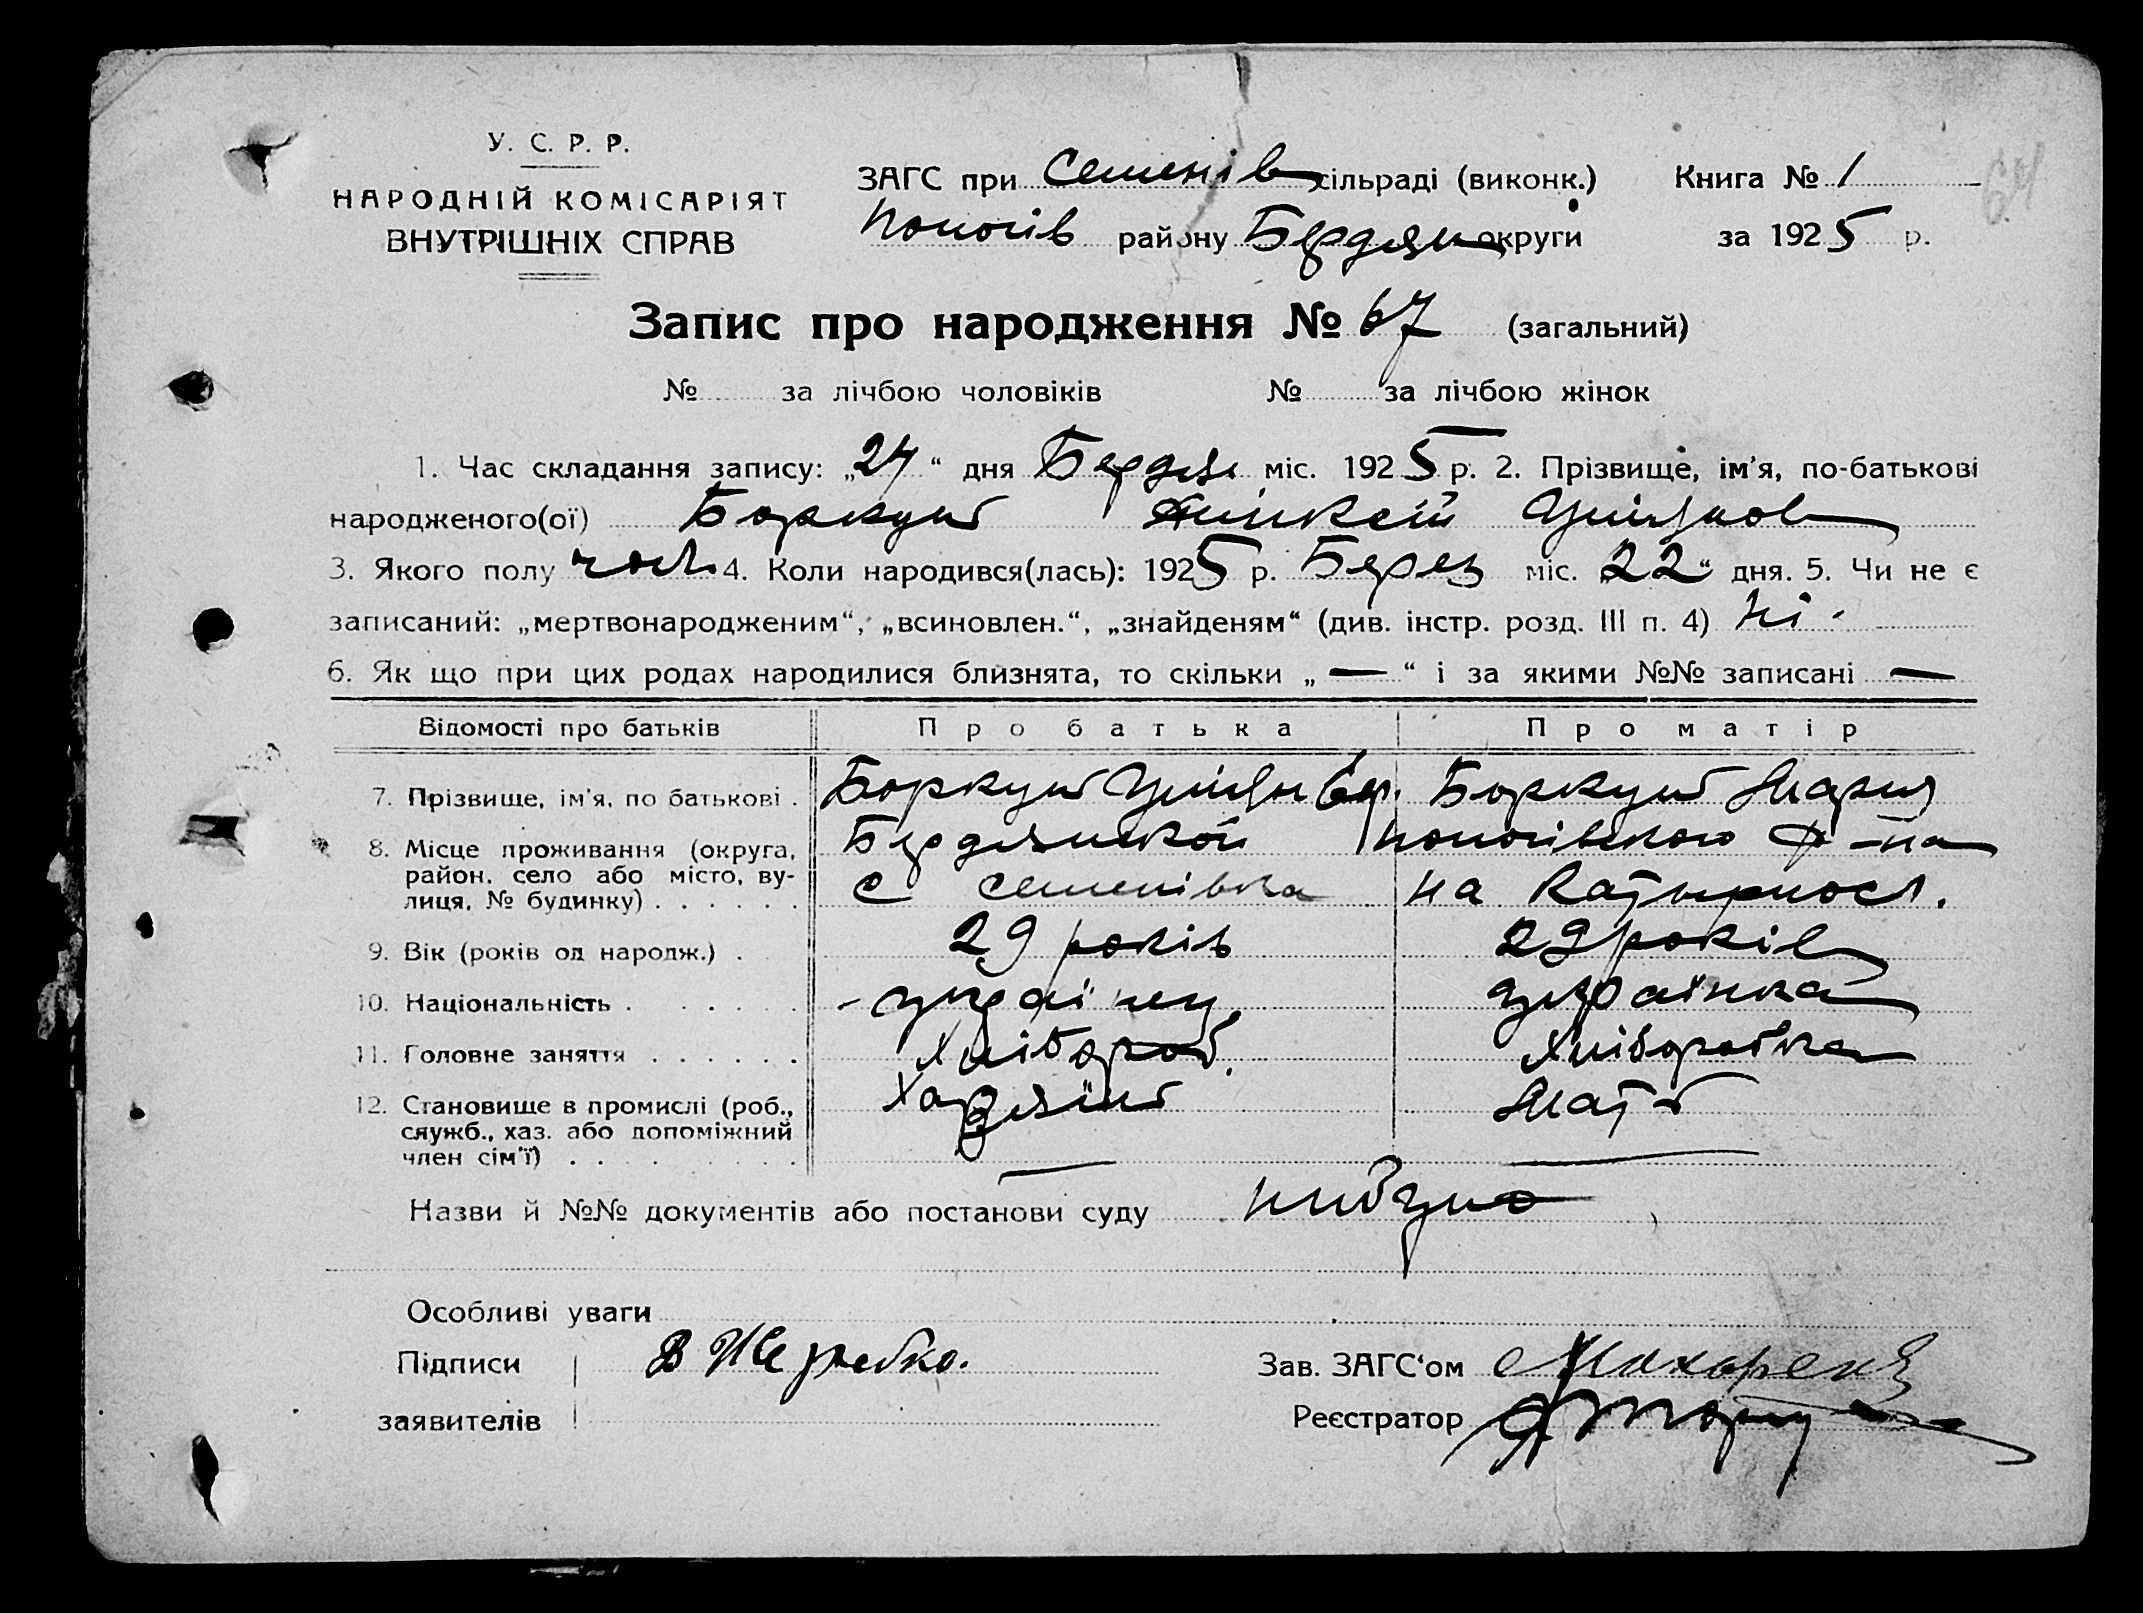 У. С. Р. Р.
НАРОДНІЙ КОМІСАРІЯТ
ВНУТРІШНІХ СПРАВ
ЗАГС при Семенів сільраді (виконк.) Книга № 1
Пологів району Бердян округи за 1925 р.
64
Запис про народження № 67 (загальний)
№ за лічбою чоловіків № за лічбою жінок
1. Час складання запису: „24“ дня міс. 1925 р. 2. Прізвище, ім'я, по-батькові
народженого(ої) Боркут
3. Якого полу чол. 4. Коли народився(лась): 1925 р. Берез міс. „22“ дня. 5. Чи не є
записаний: „мертвонародженим“, „всиновлен.“, „знайденям“ (див. інстр. розд. III п. 4) Ні.
6. Як що при цих родах народилися близнята, то скільки „—“ і за якими №№ записані —
Відомості про батьків Про батька Про матір
7. Прізвище, ім'я, по батькові . Боркут Боркут Мария
8. Місце проживання (округа, район, село або місто, вулиця, № будинку) . . . . . . Бердянской Пологівского р-на
с Семенівка на
9. Вік (років од народж.) . 29 років 29 років
10. Національність . . . . . . українец українка
11. Головне заняття . . . . . . Хлібороб. Хліборобка
12. Становище в промислі (роб., служб., хаз. або допоміжний член сім'ї) . . . . . . . . Хазяїн Мать
Назви й №№ документів або постанови суду
Особливі уваги
Підписи В Жеребко. Зав. ЗАГС'ом
заявителів Реєстратор